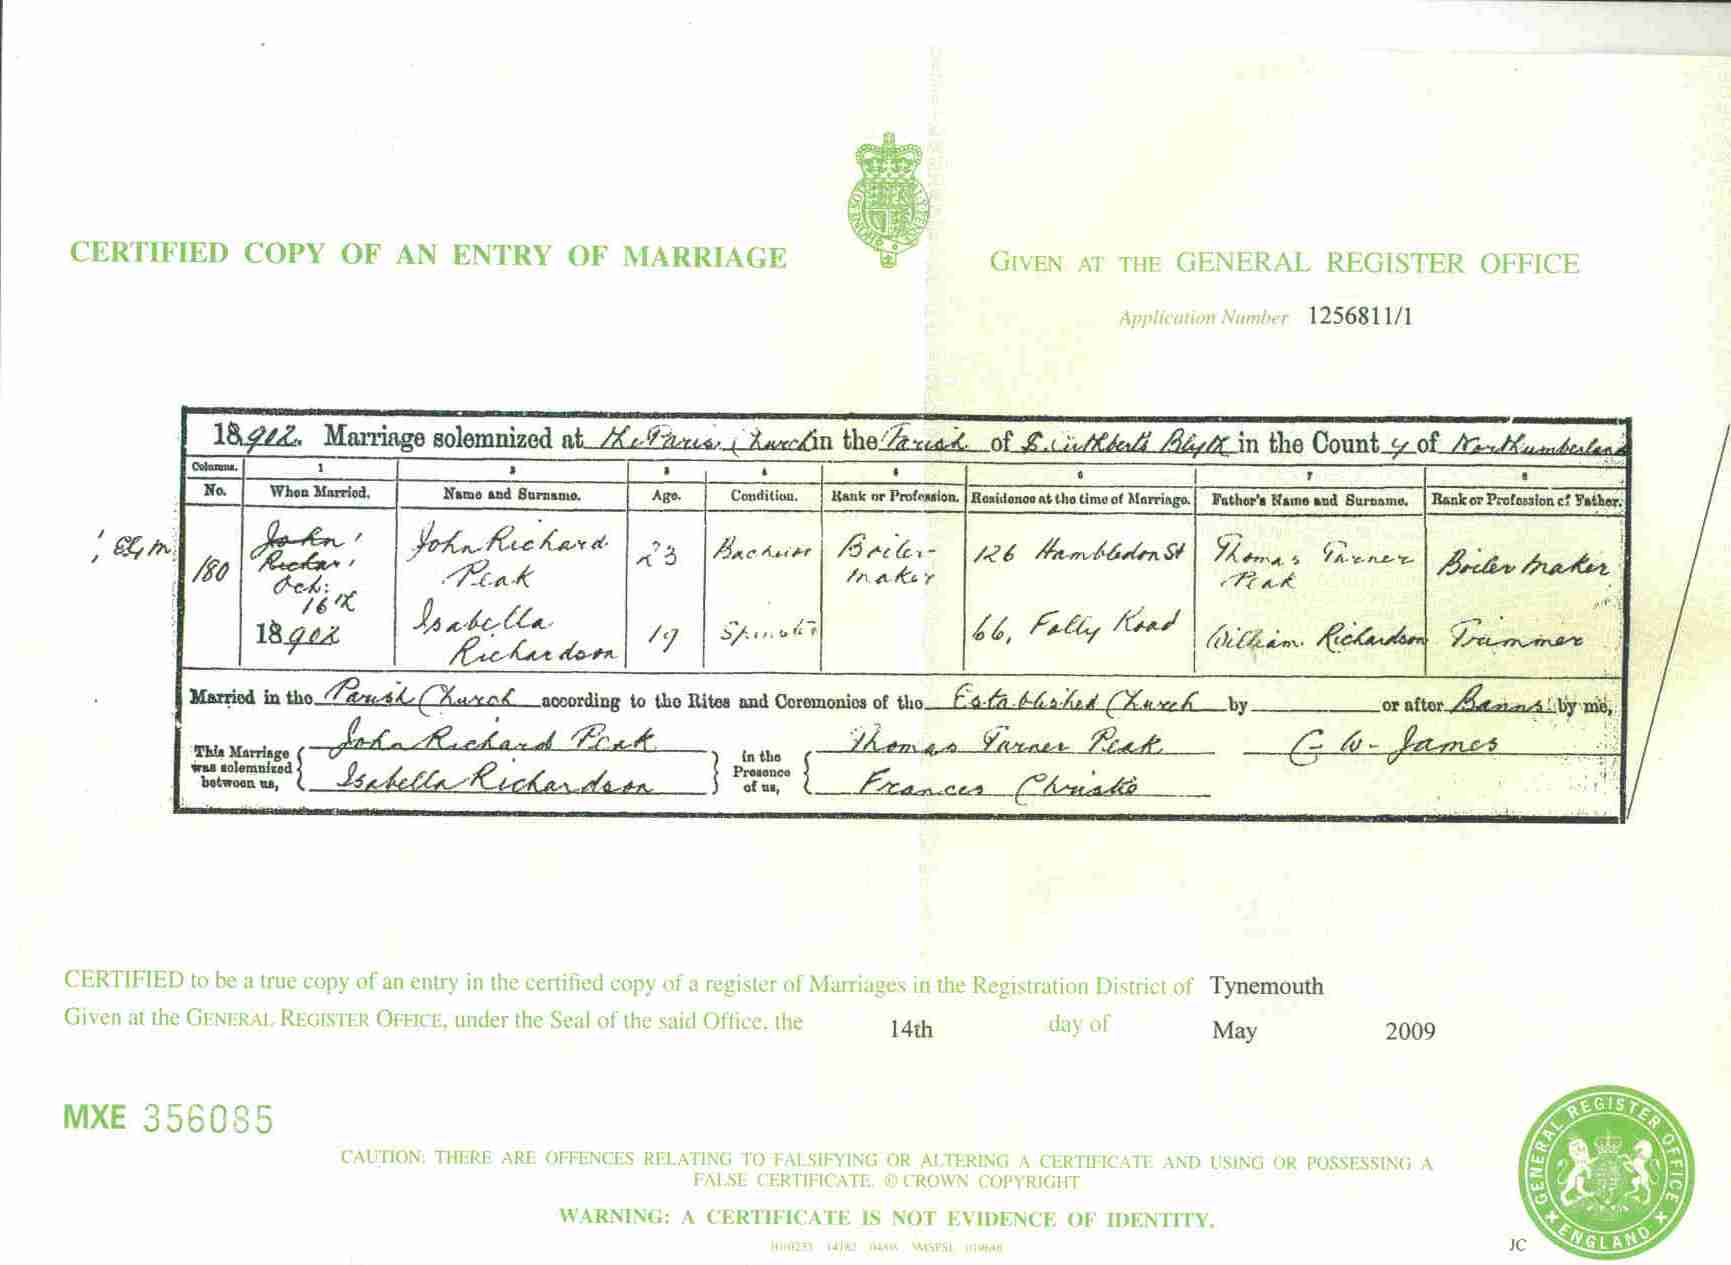 CERTIFIED COPY OF AN ENTRY OF MARRIAGE
GIVEN AT THE GENERAL REGISTER OFFICE
Application Number 1256811/1
18 902. Marriage solemnized at the Parish Church in the Parish of S. Cuthbert's Blyth in the County of Northumberland
Columns. 1 2 3 4 5 6 7 8
No. When Married. Name and Surname. Age. Condition. Rank or Profession. Residence at the time of Marriage. Father's Name and Surname. Rank or Profession of Father.
180 John Richar Oct: 16th 18 902
John Richard Peak 23 Bachelor Boiler-maker 126 Hambledon St Thomas Turner Peak Boiler maker
Isabella Richardson 19 Spinster 66, Folly Road William Richardson Trimmer
Married in the Parish Church according to the Rites and Ceremonies of the Established Church by or after Banns by me,
This Marriage was solemnized between us, John Richard Peak Isabella Richardson in the Presence of us, Thomas Turner Peak Frances Christie C W- James
CERTIFIED to be a true copy of an entry in the certified copy of a register of Marriages in the Registration District of Tynemouth
Given at the GENERAL REGISTER OFFICE, under the Seal of the said Office, the 14th day of May 2009
MXE 356085
CAUTION: THERE ARE OFFENCES RELATING TO FALSIFYING OR ALTERING A CERTIFICATE AND USING OR POSSESSING A
FALSE CERTIFICATE. © CROWN COPYRIGHT
WARNING: A CERTIFICATE IS NOT EVIDENCE OF IDENTITY.
JC
GENERAL REGISTER OFFICE
ENGLAND